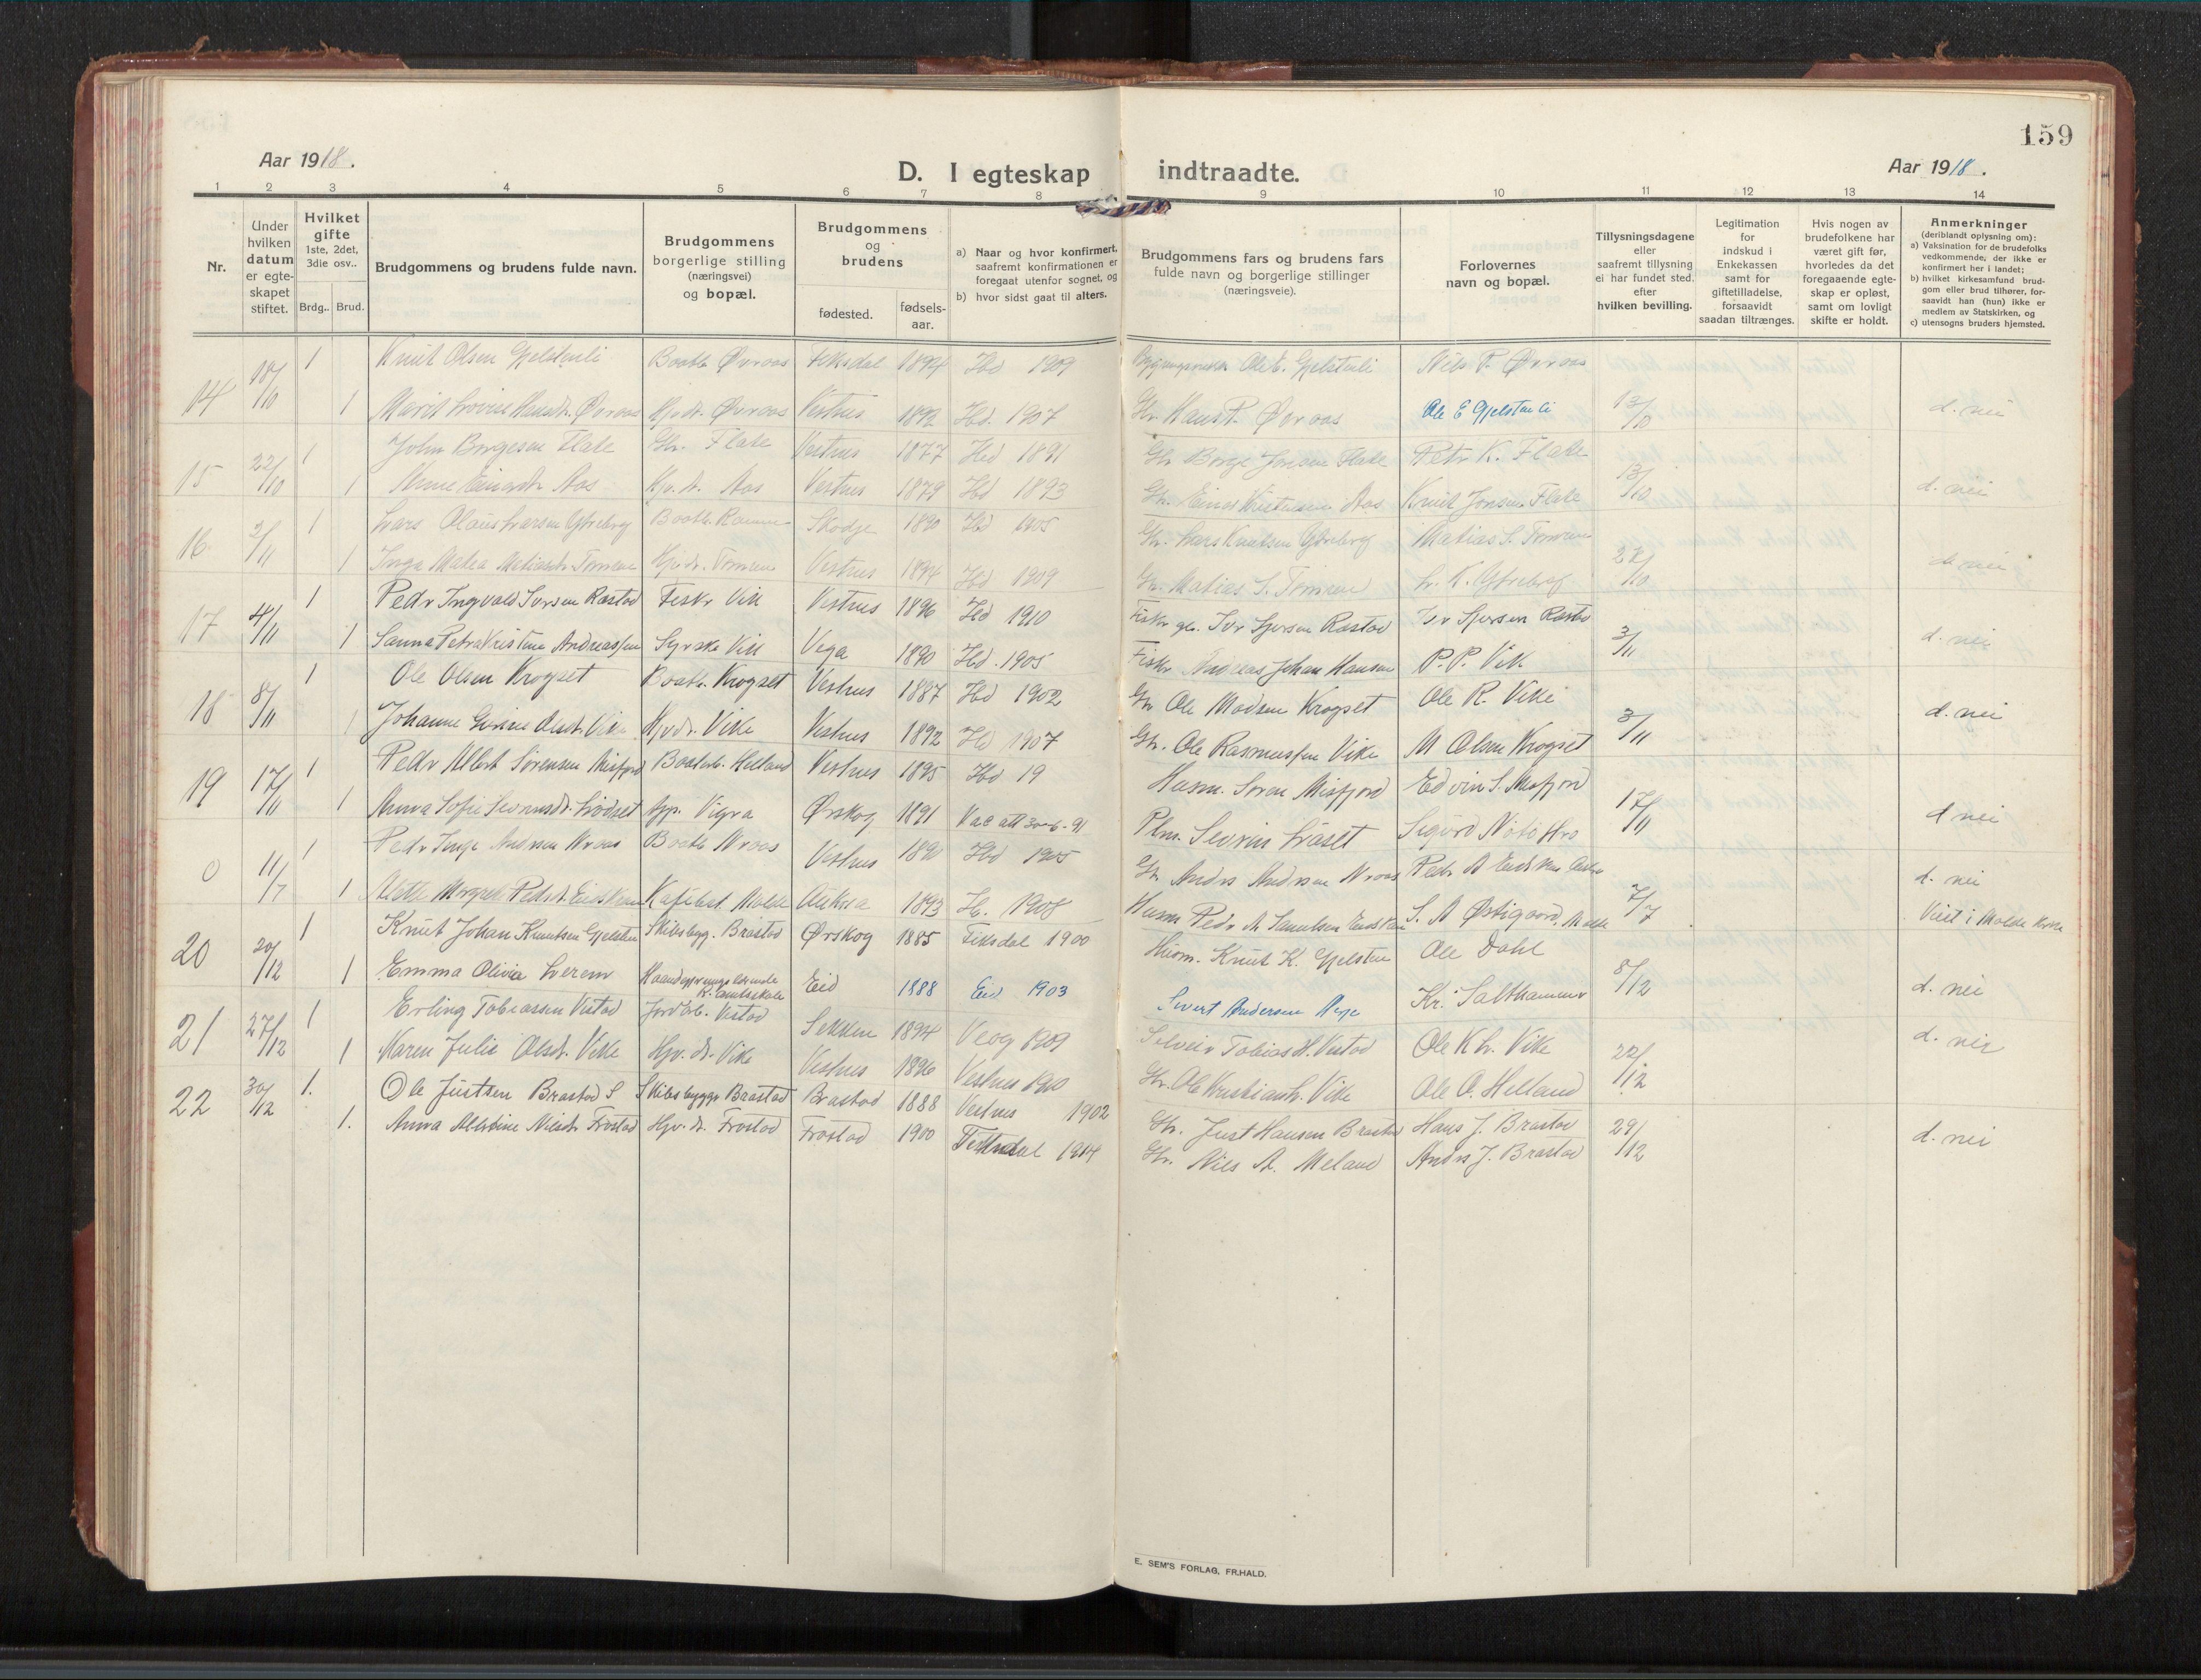 159
Aar 1918.
D. I egteskap indtraadte.
Aar 1918.
1 2 3 4 5 6 7 8 9 10 11 12 13 14
Nr.
Under hvilken datum er egte- skapet stiftet.
Hvilket gifte 1ste, 2det, 3die osv.. Brdg.. Brud.
Brudgommens og brudens fulde navn.
Brudgommens borgerlige stilling (næringsvei) og bopæl.
Brudgommens og brudens
fødested. fødsels- aar.
a) Naar og hvor konfirmert, saafremt konfirmationen er foregaat utenfor sognet, og
b) hvor sidst gaat til alters.
Brudgommens fars og brudens fars fulde navn og borgerlige stillinger (næringsveie).
Forlovernes navn og bopæl.
Tillysningsdagene eller saafremt tillysning ei har fundet sted. efter hvilken bevilling.
Legitimation for indskud i Enkekassen samt for giftetilladelse, forsaavidt saadan tiltrænges.
Hvis nogen av brudefolkene har været gift før, hvorledes da det foregaaende egte- skap er opløst, samt om lovligt skifte er holdt.
Anmerkninger (deriblandt oplysning om):
a) Vaksination for de brudefolks vedkommende, der ikke er konfirmert her i landet;
b) hvilket kirkesamfund brud- gom eller brud tilhører, for- saavidt han (hun) ikke er medlem av Statskirken, og
c) utensogns bruders hjemsted.
14 18/10 1 Knut Olsen Gjelstenli Baatb. Øvraas Fiksdal 1894 Hd 1909 Ole E. Gjelstenli Nils P. Øvraas
1 Marit Lovise Hansdt. Øvraas Hjv.dt. Øvraas Vestnes 1892 Hd. 1907 Gbr. Hans P. Øvraas Ole E Gjelstenli 13/10 d. nei
15 22/10 1 John Børgesen Flate Gbr. Flate Vestnes 1877 Hd 1891 Gbr Børge Jonsen Flate Petr K. Flate
1 Anne Einarsdt. Aas Hjv. dt. Aas Vestnes 1879 Hd 1893 Gbr. Einar Kristensen Aas Knut Jonsen Flate 13/10 d. nei
16 2/11 1 Lars Olaus Larsen Ytreberg Baatb. Skodje 1890 Hd 1905 Gbr. Lars Knutsen Ytreberg Matias S. Tomren
1 Inga Matea Matiasdt. Tomren Hjv.dt. Tomren Vestnes 1894 Hd 1909 Gbr. Matias S. Tomren L. K. Ytreberg 27/10 d. nei
17 4/11 1 Pedr Ingvald Iversen Rastad Fiskr Vik Vestnes 1896 Hd 1910 Fiskr Ivr Sjursen Rastad Ivr Sjursen Rastad
1 Sanna Petra Kristine Andreassen Syrske Vik Vega 1890 Hd. 1905 Fiskr Andreas Johan Hansen P. P. Vik 3/11 d. nei
18 8/11 1 Ole Olsen Krogset Baatb. Krogset Vestnes 1887 Hd 1902 Gbr Ole Madsen Krogset Ole R. Vike
1 Johanne Olsdt. Vike Hjv.dt. Vike Vestnes 1892 Hd 1907 Gbr. Ole Rasmussen Vike M Olsen Krogset 3/11 d. nei
19 17/11 1 Pedr Albert Sørensen Misfjord Baatb. Helland Vestnes 1895 Hd 19 Husm. Søren Misfjord Edvin S. Misfjord
1 Anna Sofie Sevrinsdt. Lødset Vigra Ørskog 1891 Vac att 30-6-91 Plm. Sevrin Sigurd 17/11 d nei
0 11/7 1 Pedr Inge Andrsen Nraas Baatb Nraas Vestnes 1890 Hd 1905 Gbr Andrs Andrsen Nraas Pedr A
1 Mette Margrete Pedrdt. Molde Aukra 1893 H. 1908 Husm Pedr A Samuelsen S. A Østigaard, Molde 7/7 d. nei Viet i Molde Kirke
20 20/12 1 Knut Johan Knutsen Gjelsten Skibsbyg. Brastad Ørskog 1885 Fiksdal 1900 Husm. Knut K. Gjelsten Ole Dahl
1 Emma Olivia Leren Haandgjerningslærinde K. amtsskole Eid 1888 Eid 1903 Sivert Andersen Kr. Salthammer 8/12 d. nei
21 27/12 1 Erling Tobiassen Vestad Jordarb. Vestad Sekken 1894 Veøy 1909 Selveir Tobias H. Vestad Ole K L. Vike
1 Maren Julie Olsdt. Vike Hjv. dt. Vike Vestnes 1896 Vestnes 1910 Gbr. Ole Kristian L. Vike Ole O. Helland 22/12 d. nei
22 30/12 1. Ole Justsen Brastad S Skibsbyggr Brastad Brastad 1888 Vestnes 1902 Gbr. Just Hansen Brastad Hans J. Brastad
1. Anna Albertine Nilsdt. Frostad Hjv. dt. Frostad Frostad 1900 Fiksdal 1914 Gbr. Nils A. Meland Andrs J. Brastad 29/12 d. nei
E. SEM'S FORLAG, FR.HALD.